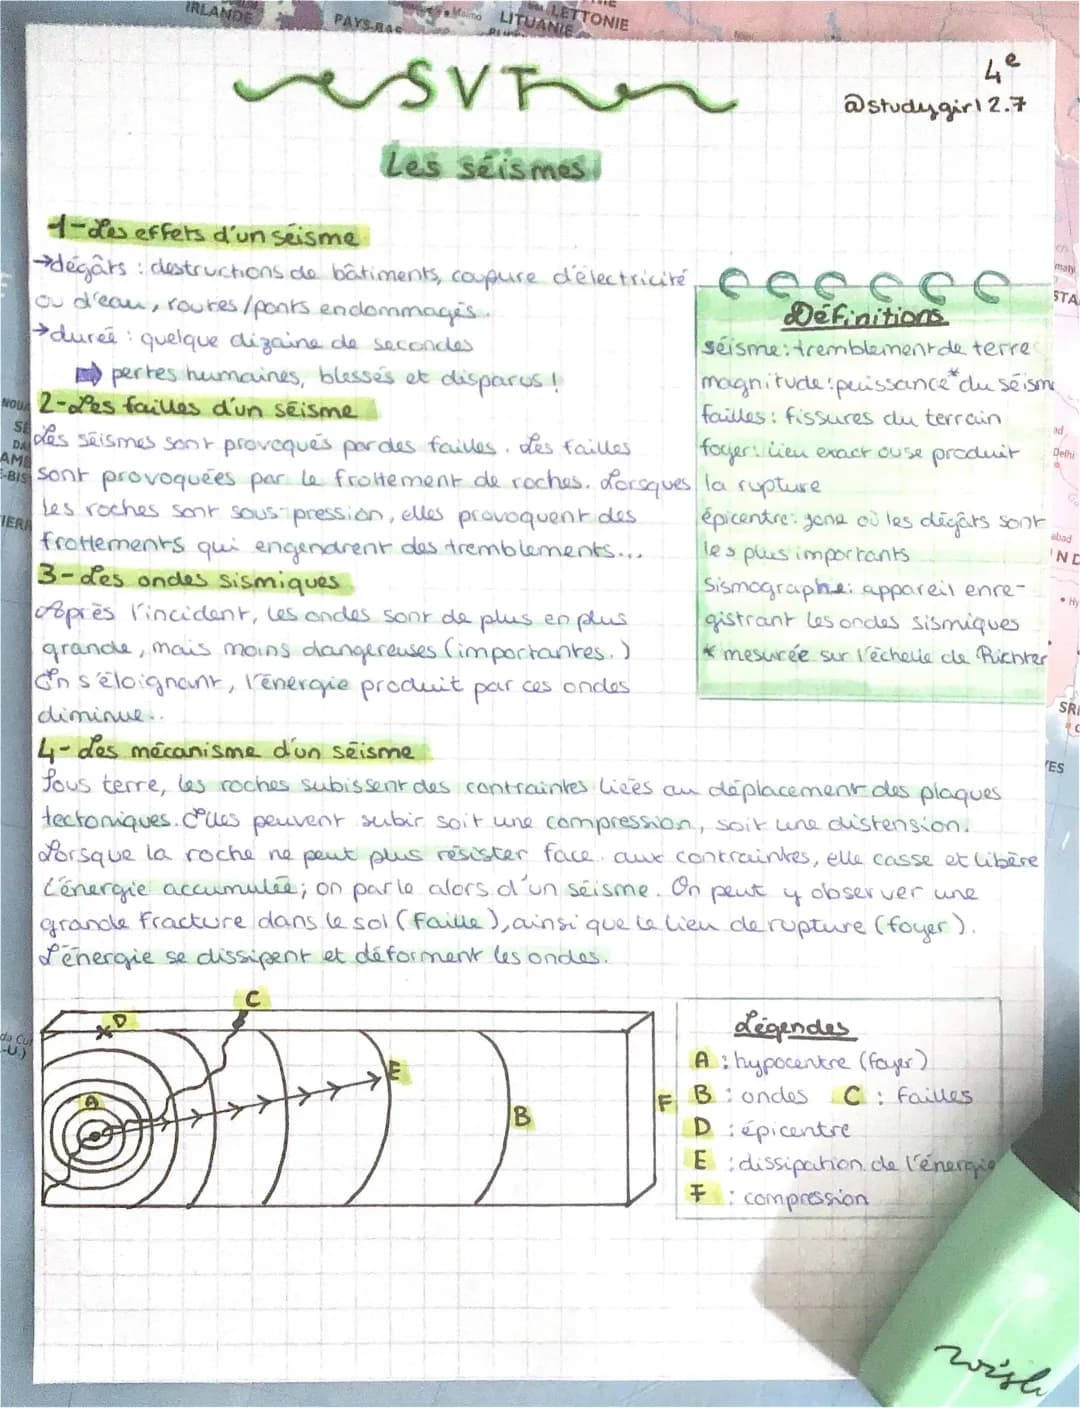 IRLANDE
PAYS-BAS
Malmö
LITUANIE
LETTONIE
SVT
4e
@studygirl2.7
Les séismes
1-Les effets d'un séisme
→dégâts : destructions de bâtiments, coupure d'électricité
ou d'eau, routes/ponts endommagés.
→durée : quelque dizaine de secondes
⇨ pertes humaines, blessés et disparus !
2-Les failles d'un séisme
Les séismes sont provoqués par des failles. Les failles
sont provoquées par le frottement de roches. Lorsques
les roches sont sous-pression, elles provoquent des
frottements qui engendrent des tremblements...
3-Les ondes sismiques
Après l'incident, les ondes sont de plus en plus
grande, mais moins dangereuses (importantes.)
En s'éloignant, l'énergie produit par ces ondes
diminue..
Définitions
séisme: tremblement de terre
magnitude: puissance* du séisme
failles: fissures du terrain
foyer: lieu exact ou se produit
la rupture
épicentre: zone où les dégâts sont
les plus importants
Sismographe: appareil enre-
gistrant les ondes sismiques
* mesurée sur l'échelle de Richter
4-Les mécanisme d'un séisme
Sous terre, les roches subissent des contraintes liées au déplacement des plaques
tectoniques. Elles peuvent subir soit une compression, soit une distension.
Lorsque la roche ne peut plus résister face aux contraintes, elle casse et libère
l'énergie accumulée; on parle alors d'un séisme. On peut y observer une
grande fracture dans le sol (faille), ainsi que le lieu de rupture (foyer).
L'énergie se dissipent et déforment les ondes.
C
D
A
E
B
F
Légendes
A : hypocentre (foyer)
B : ondes C : failles
D : épicentre
E : dissipation de l'énergie
F : compression
wish
Delhi